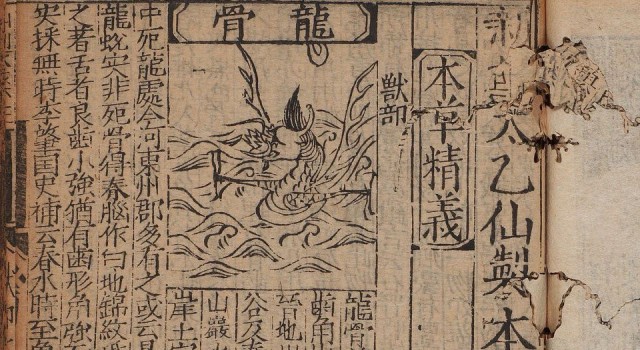 太乙仙製本
本草精義
獸部
龍骨
龍骨
齒角
晉地川
谷及
山巖
崖土
中死龍處今河東州郡多有之或云是
龍蛻实非死骨得脊腦作白地錦紋
之着舌者良齒小強猶有齒形角強
史採無時李肇国史補云春水時至魚